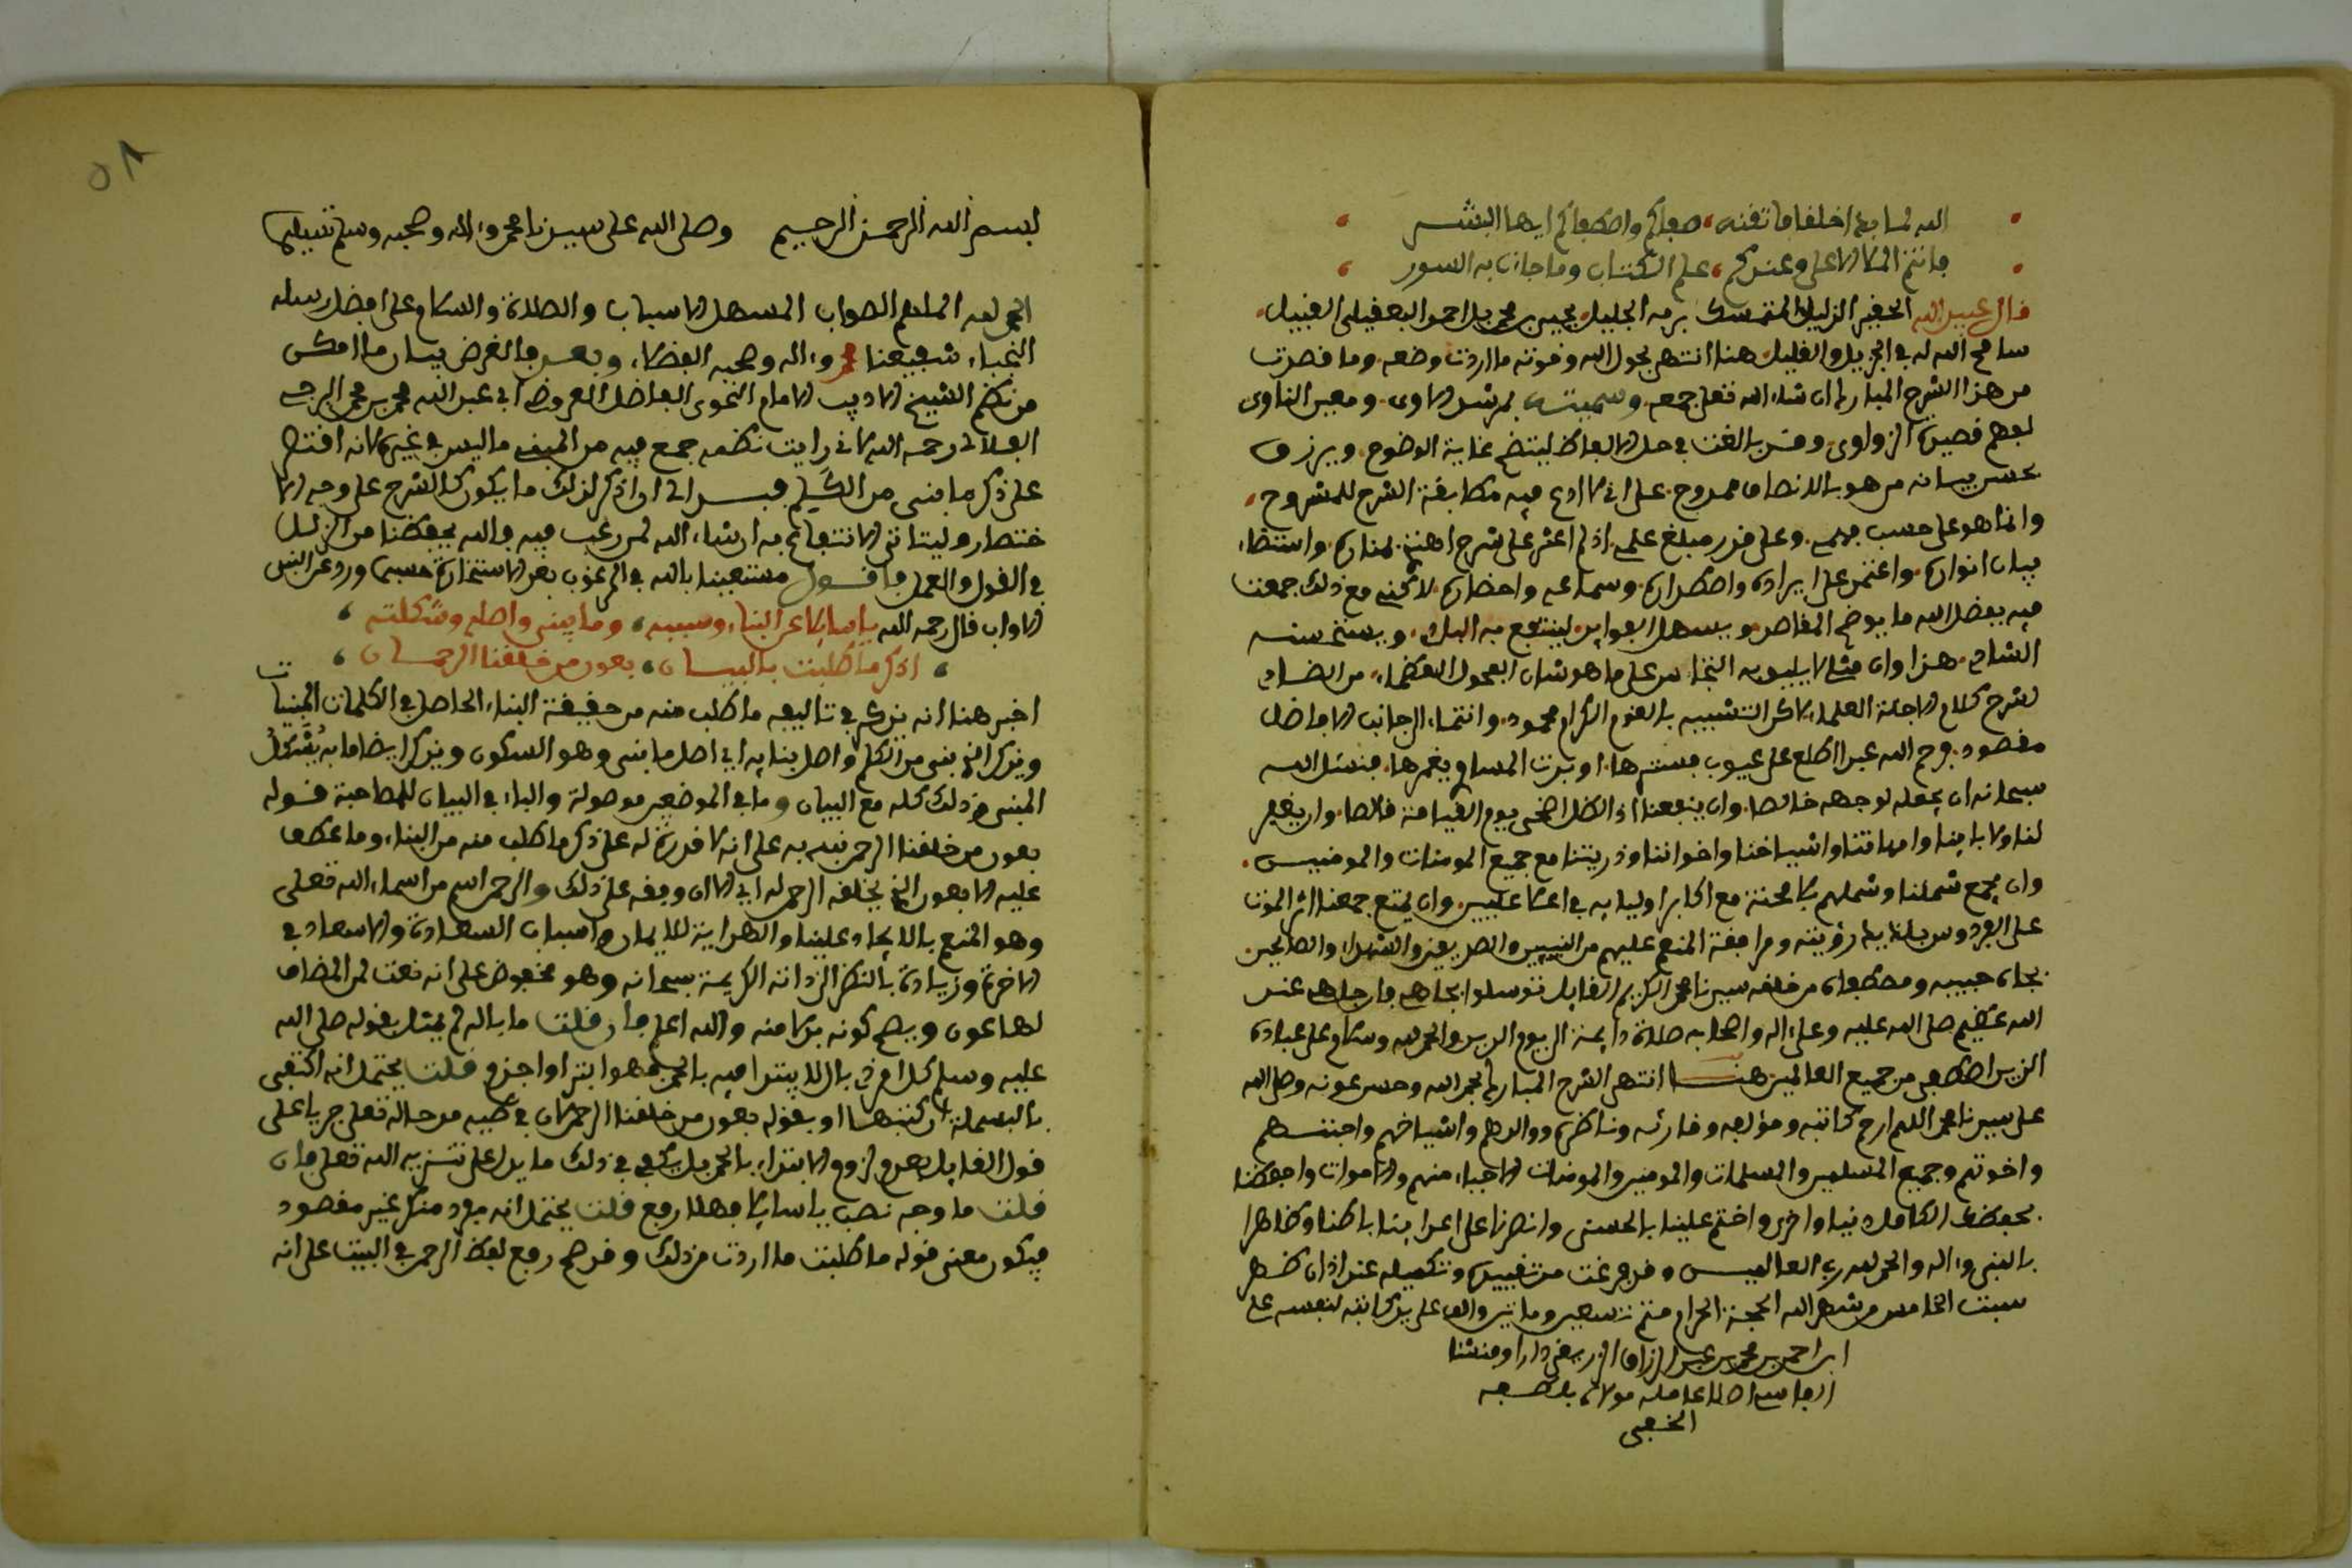 الله لما بدا خلفا فاتقنه صفاكم واصطفاكم ايها البشر
فانتم الملا الاعلى وعندكم علم الكتاب وما جات به السور
قال عبيد الله الحقير الذليل المتمسك برمه الجليل يحيى بن محمد بن احمد النفيلي القبيل
سامح الله له في الجزيل والقليل هنا انتهى بحول الله وقوته ما اردت وضعه وما قصدت
من هذا الشرح المبارك ان شاء الله تعلى جمعه وسميته بمرشد الاوى ومعين الناوى
لفهم قصيدة الزواوى وقد بالغت في حل الالفاظ ليتضح غاية الوضوح ويبرز
بحسن بيانه من هو بالانصاف ممدوح على اني لا ادع فيه مطابقة الشرح للمشروح
وانما هو على حسب فهمي وعلى قدر مبلغ علمي اذ لم اعثر على شرح اهتدى بمناره واستضاء
ببيان انواره واعتمد على ايراده واصطداره وسماعه واحضاره لاكني مع ذلك جمعت
فيه بفضل الله ما يوضح المقاصد ويسهل الفوايد لينتفع به البادي ويستحسنه
الشادي هذا وان مثلي لا يليق به التجاسر على ما هو شان الفحول العظماء من التصدي
لشرح كلام الاجلة العلماء لاكن التشبيه بالقوم الكرام محمود وانتماء الى جانب الافاضل
مقصود فرحم الله عبدا اطلع على عيوب فسترها او بدت المساوي فغمرها فنسئل الله
سبحانه ان يجعله لوجهه خالصا وان ينفعنا اذا الظل اضحى يوم القيامة قالصا وان يغفر
لنا ولابائنا وامهاتنا واشياخنا واخواننا وذريتنا مع جميع المومنات والمومنين
وان يجمع شملنا وشملهم بلا محنة مع اكابر اوليايه في اعلا عليين وان يمتع جمعنا اثر الموت
على الفردوس بلذيذ رؤيته ومرافقة المنعم عليهم من النبيين والصديقين والشهداء والصالحين
بجاه حبيبه ومصطفاه من خلقه سيدنا محمد الكريم القايل توسلوا بجاهي فان جاهي عند
الله عظيم صلى الله عليه وعلى اله واصحابه صلاة دايمة الى يوم الدين والحمد لله وسلام على عباده
الذين اصطفى من جميع العالمين هنا انتهى الشرح المبارك بحمد الله وحسن عونه وصلى الله
على سيدنا محمد اللهم ارحم كاتبه ومؤلفه وقارئه وناظره ووالدهم واشياخهم واحبتهم
واخوتهم وجميع المسلمين والمسلمات والمومنين والمومنات الاحياء منهم والاموات واحفظنا
بحفظك الكامل دنيا واخرى واختم علينا بالحسنى وانصرنا على اعدائنا باطنا وظاهرا
بالنبي واله والحمد لله رب العالمين وقد فرغت من تقييده وتكميله عند اذان ظهر
سبت الخامس من شهر الله الحجة الحرام متم تسعين وماتين والف على يد كاتبه لنفسه علي
ابن احمد بن محمد بن عبد الرزاق دارا ومنشئا
الفاسي اصلا عامله مولاه بلطفه
الخفي
٥٨
بسم الله الرحمن الرحيم وصلى الله على سيدنا محمد واله وصحبه وسلم تسليما
الحمد لله الملهم الصواب المسهل الاسباب والصلاة والسلام على افضل رسله
النجباء شفيعنا محمد واله وصحبه الفضلاء وبعد فالغرض بيان ما امكن
من نظم الشيخ الاديب الامام النحوى الفاضل العروضي ابي عبد الله محمد بن محمد
رحمه الله لاني رايت نظمه جمع فيه من المبني ما ليس في غيره لانه اقتصر
على ذكر ما بني من الكلم فبدا لي ان اذكر لذلك ما يكون كالشرح على وجه الا
ختصار وليتاتى الانتفاع به ان شاء الله لمن رغب فيه والله يحفظنا من الزلل
في القول والعمل فاقول مستعينا بالله في المرغوب بعد الاستخارة حسبما ورد عن النبي
الاواب قال رحمه الله يا سايلا عن البناء وسببه وما بني واصله وشكلته
اذكر ما طلبت بالبيان بعون من خلقنا الرحمان
اخبر هنا انه يذكر في تاليفه ما طلب منه من حقيقة البناء الحاصل في الكلمات المبنيات
ويذكر الذي بني من الكلم واصل بنايه اي اصل ما بني وهو السكون ويذكر ايضا ما به يشكل
المبني من ذلك كله مع البيان وما في الموضعين موصولة والباء في البيان للمصاحبة قوله
بعون من خلقنا الرحمن نبه به على انه لا قدرة له على ذكر ما طلب منه من البناء وما عطف
عليه الا بعون الذي يخلقه الرحمن له اي الا ان وفقه على ذلك والرحمن اسم من اسماء الله تعلى
وهو المنعم بالايجاد علينا والهداية للايمان واسباب السعادة والاسعاد في
الاخرة وزيادة بالنظر الى ذاته الكريمة سبحانه وهو مخفوض على انه نعت لمن المضاف
لها عون ويصح كونه بدلا منه والله اعلم فان قلت ما باله لم يمتثل بقوله صلى الله
عليه وسلم كل امر ذي بال لا يبتدا فيه بالحمد فهو ابتر او اجزم قلت يحتمل انه اكتفى
بالبسملة ان كتبها او بقوله بعون من خلقنا الرحمن لان في طيه مدحا له تعلى جريا على
قول القايل بعدم لزوم الابتداء بالحمد بل يكفي في ذلك ما يدل على تنزيه الله تعلى فان
قلت ما وجه نصب يا سايلا فهلا رفع قلت يحتمل انه مفرد منكر غير مقصود
فيكون معنى قوله ما طلبت ما اردت من ذلك وقد صح رفع لفظ الرحمن في البيت على انه